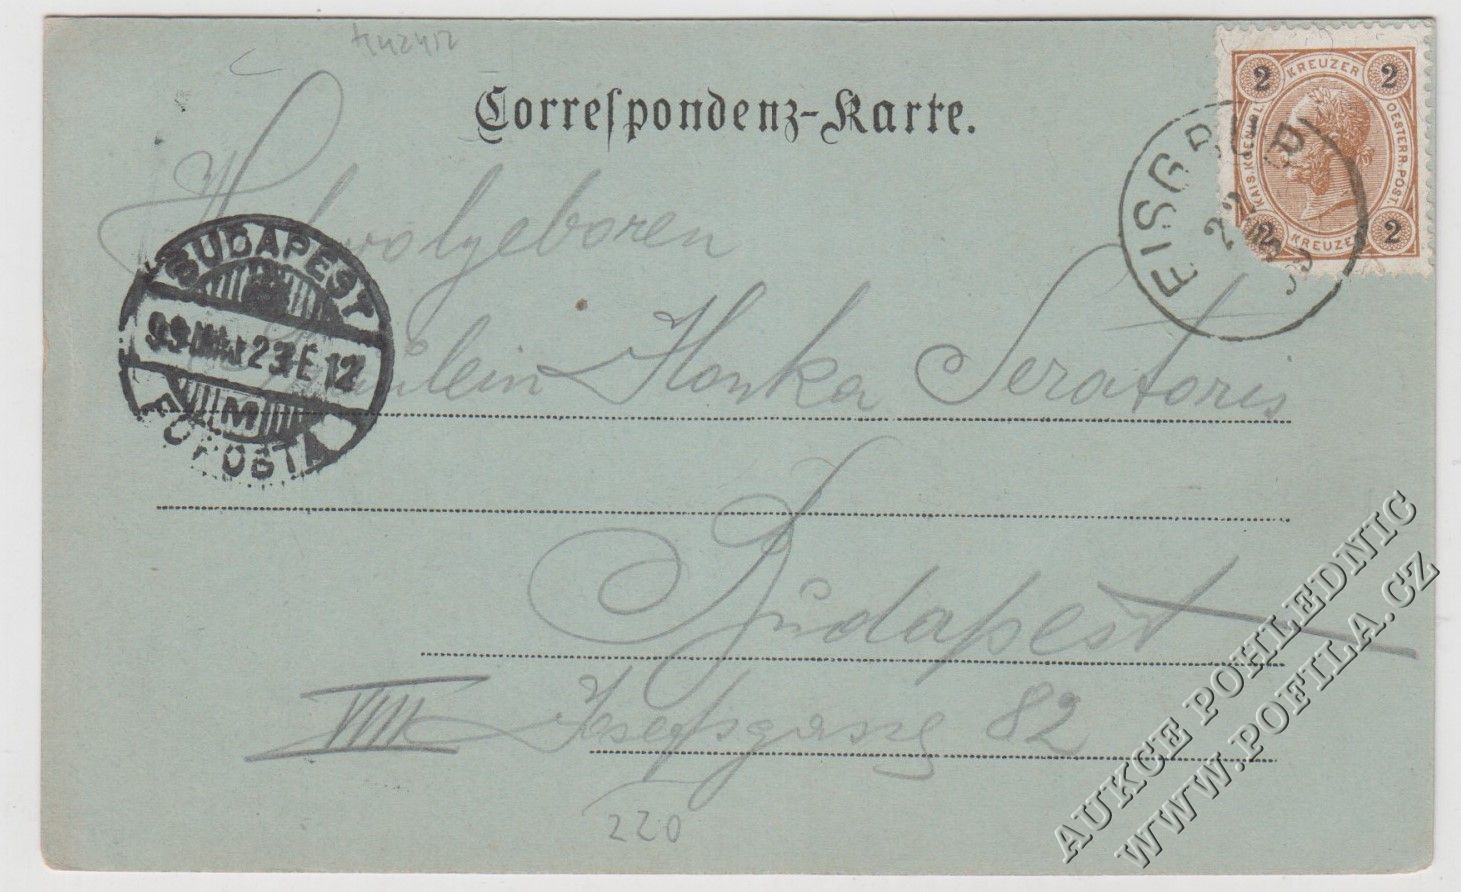 Correspondenz-Karte.
2 KREUZER 2
KAIS. KOENIGL. OESTERR. POST
2 KREUZER 2
EISGRUB
22
BUDAPEST
99 MÁJ 23 E 12
M
FŐPOSTA
Wohlgeboren
Fräulein Ilonka
Budapest
VIII Josefsgasse 82
220
AUKCE POHLEDNIC
WWW.POFILA.CZ